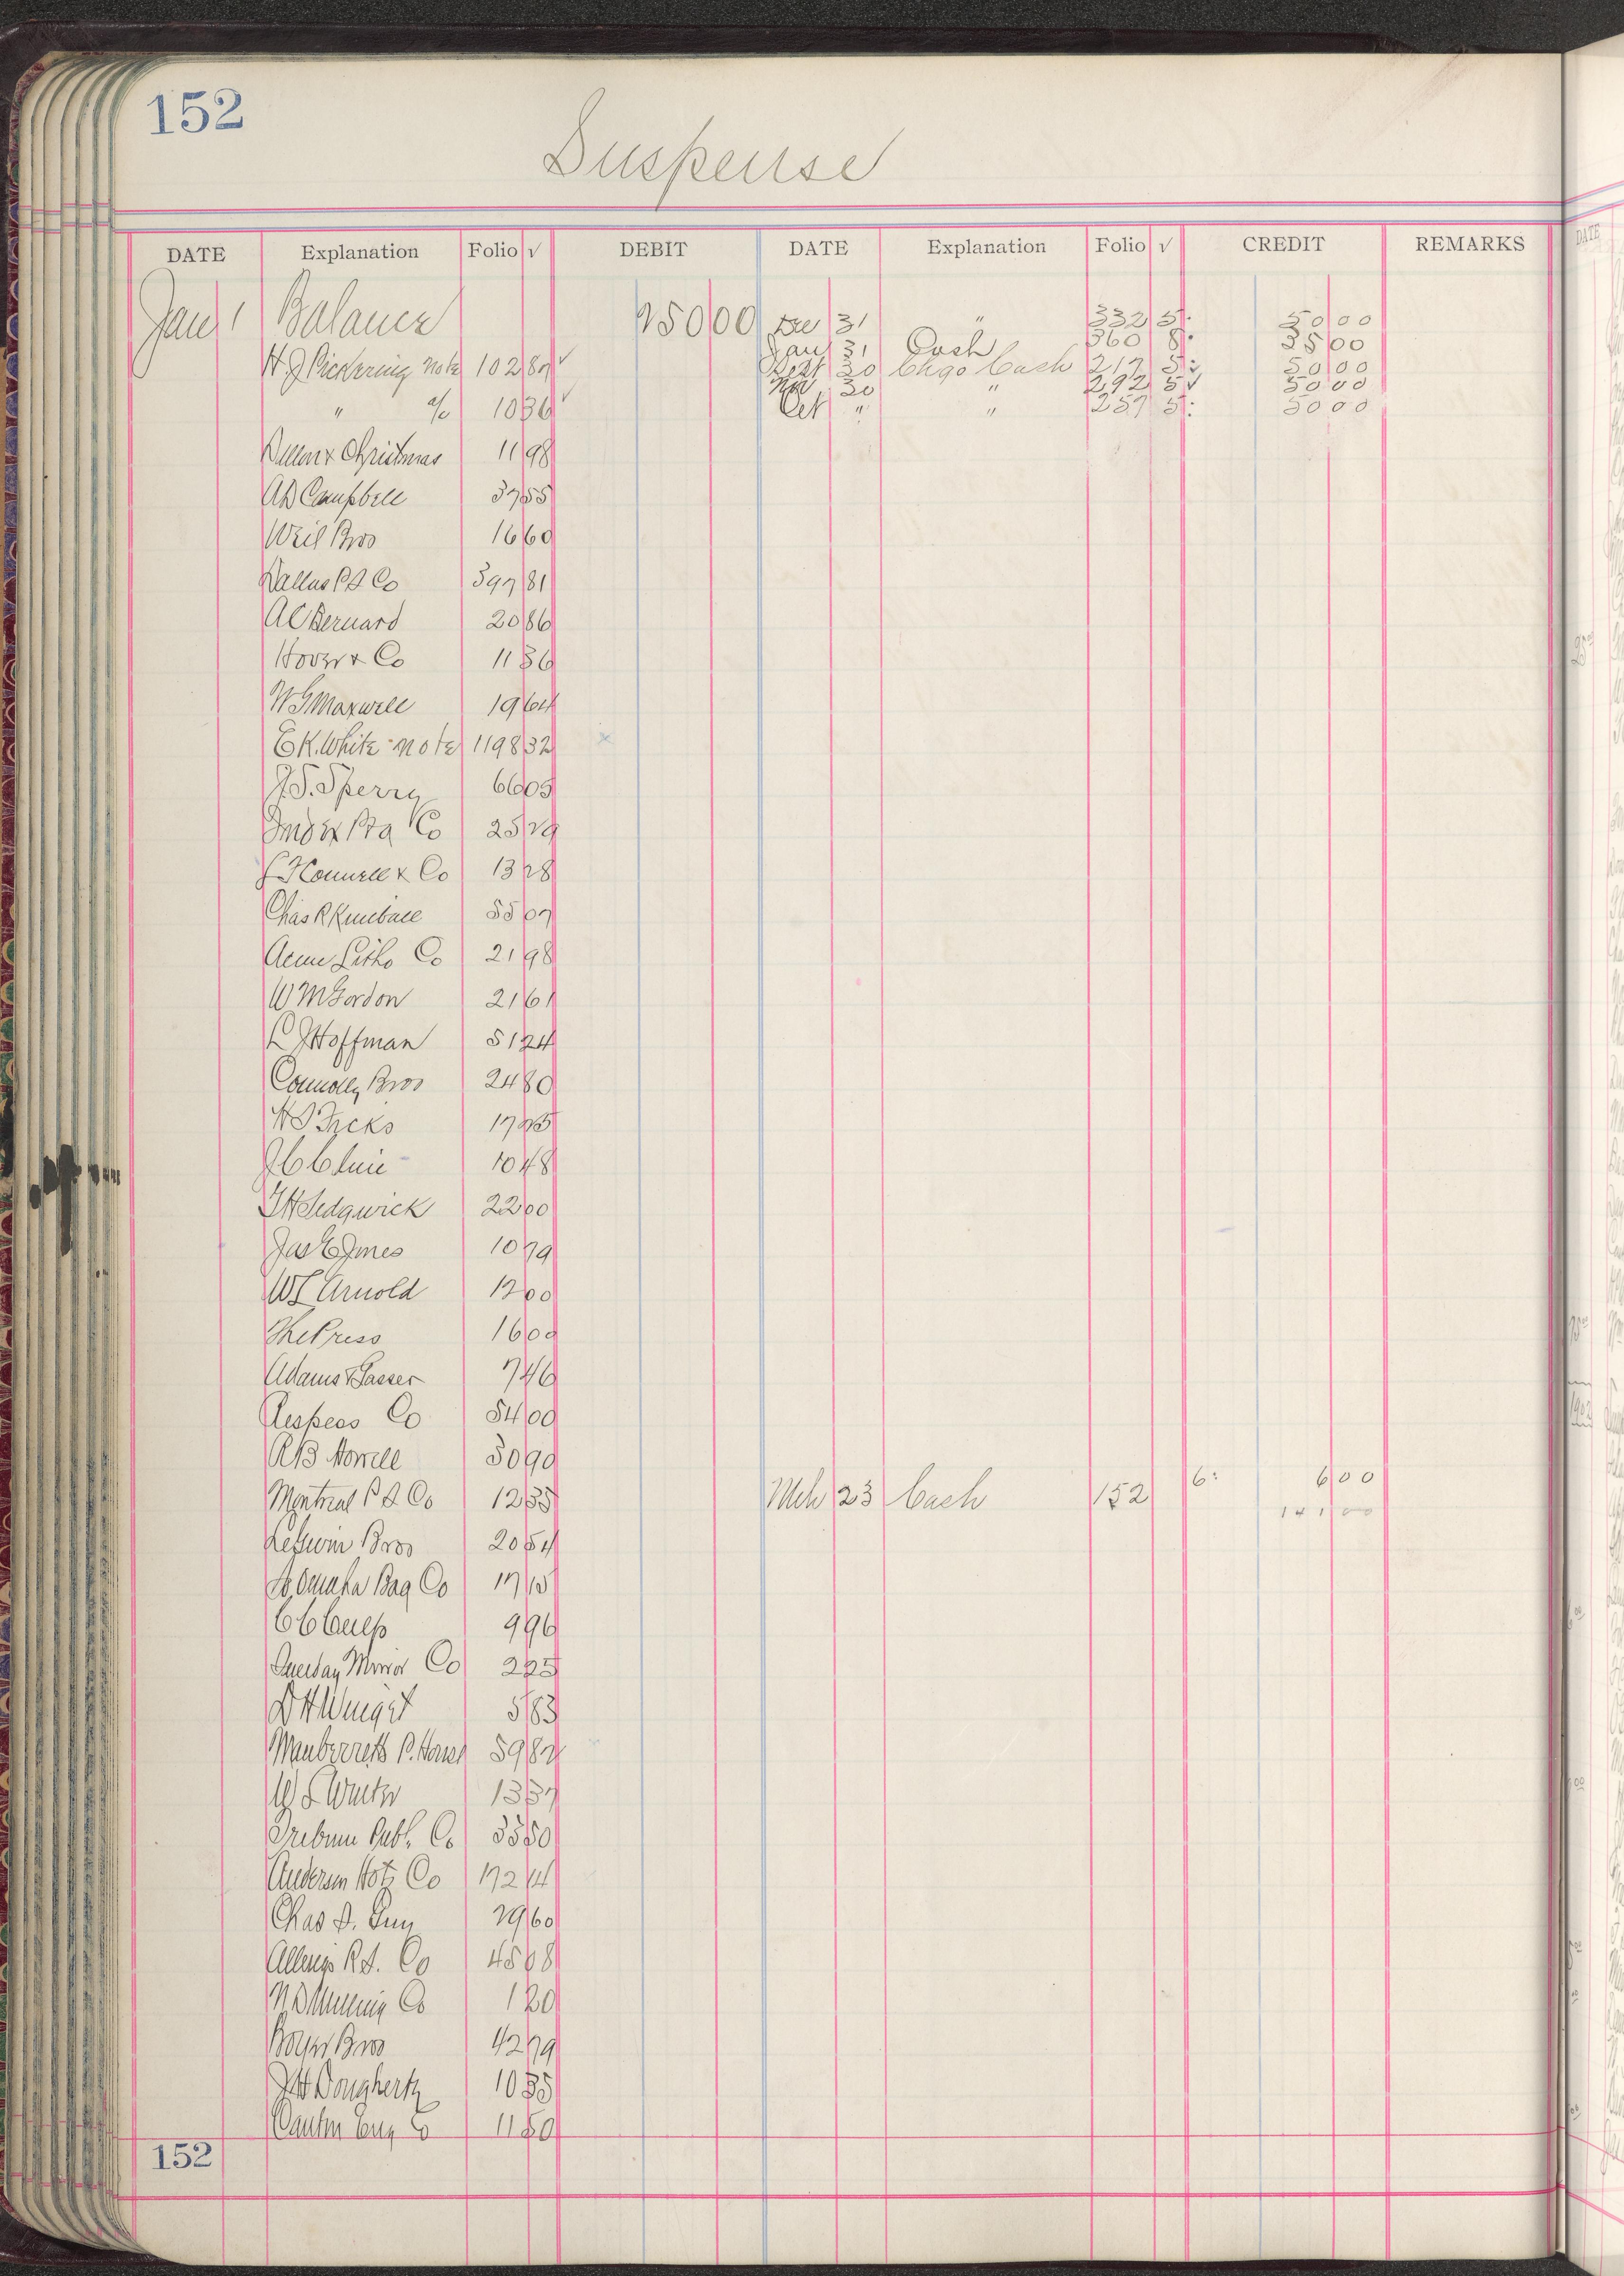 152
Suspense
DATE Explanation Folio √ DEBIT DATE Explanation Folio √ CREDIT REMARKS
Jan 1 Balance 250 00 Dec 31 " 332 5 50 00
Jan 31 Cash 360 8 35 00
H J Pickering note 102 87 √ Sept 30 Chgo Cash 217 5 50 00
Nov 30 " 292 5 √ 50 00
" a/c 10 36 √ Oct " " 257 5 50 00
& Christmas 11 98
AD Campbell 37 55
Weil Bros 16 60
Dallas P S Co 397 81
A C Bernard 20 86
Hover & Co 11 36
W G Maxwell 19 64
E K. White - note 1198 32 x
J. S. Sperry 66 05
Index Ptg Co 25 29
Connell & Co 13 28
Chas R Kimball 55 07
Acme Litho Co 21 98
W M Gordon 21 61
L J Hoffman 51 24
Connolly Bros 24 80
H S Ficks 17 25
J C Cluie 10 48
J H Sedgwick 22 00
Jas E Jones 10 79
W L Arnold 12 00
The Press 16 00
Adams & Gasser 7 46
Respess Co 54 00
R B Howell 30 90
Montreal P S Co 12 35 Mch 23 Cash 152 6 6 00
141 00
Bros 20 54
So. Omaha Bag Co 17 15
C C Culp 9 96
Sunday Mirror Co 2 25
D H Winget 5 83
Mauberrets P. House 59 82
W S 13 37
Tribune Publ. Co 35 50
Anderson Hotz Co 172 14
Chas S. 29 60
P. S. Co 45 08
Co 1 20
Boyer Bros 42 79
J H Dougherty 10 35
Canton Eng Co 11 50
152